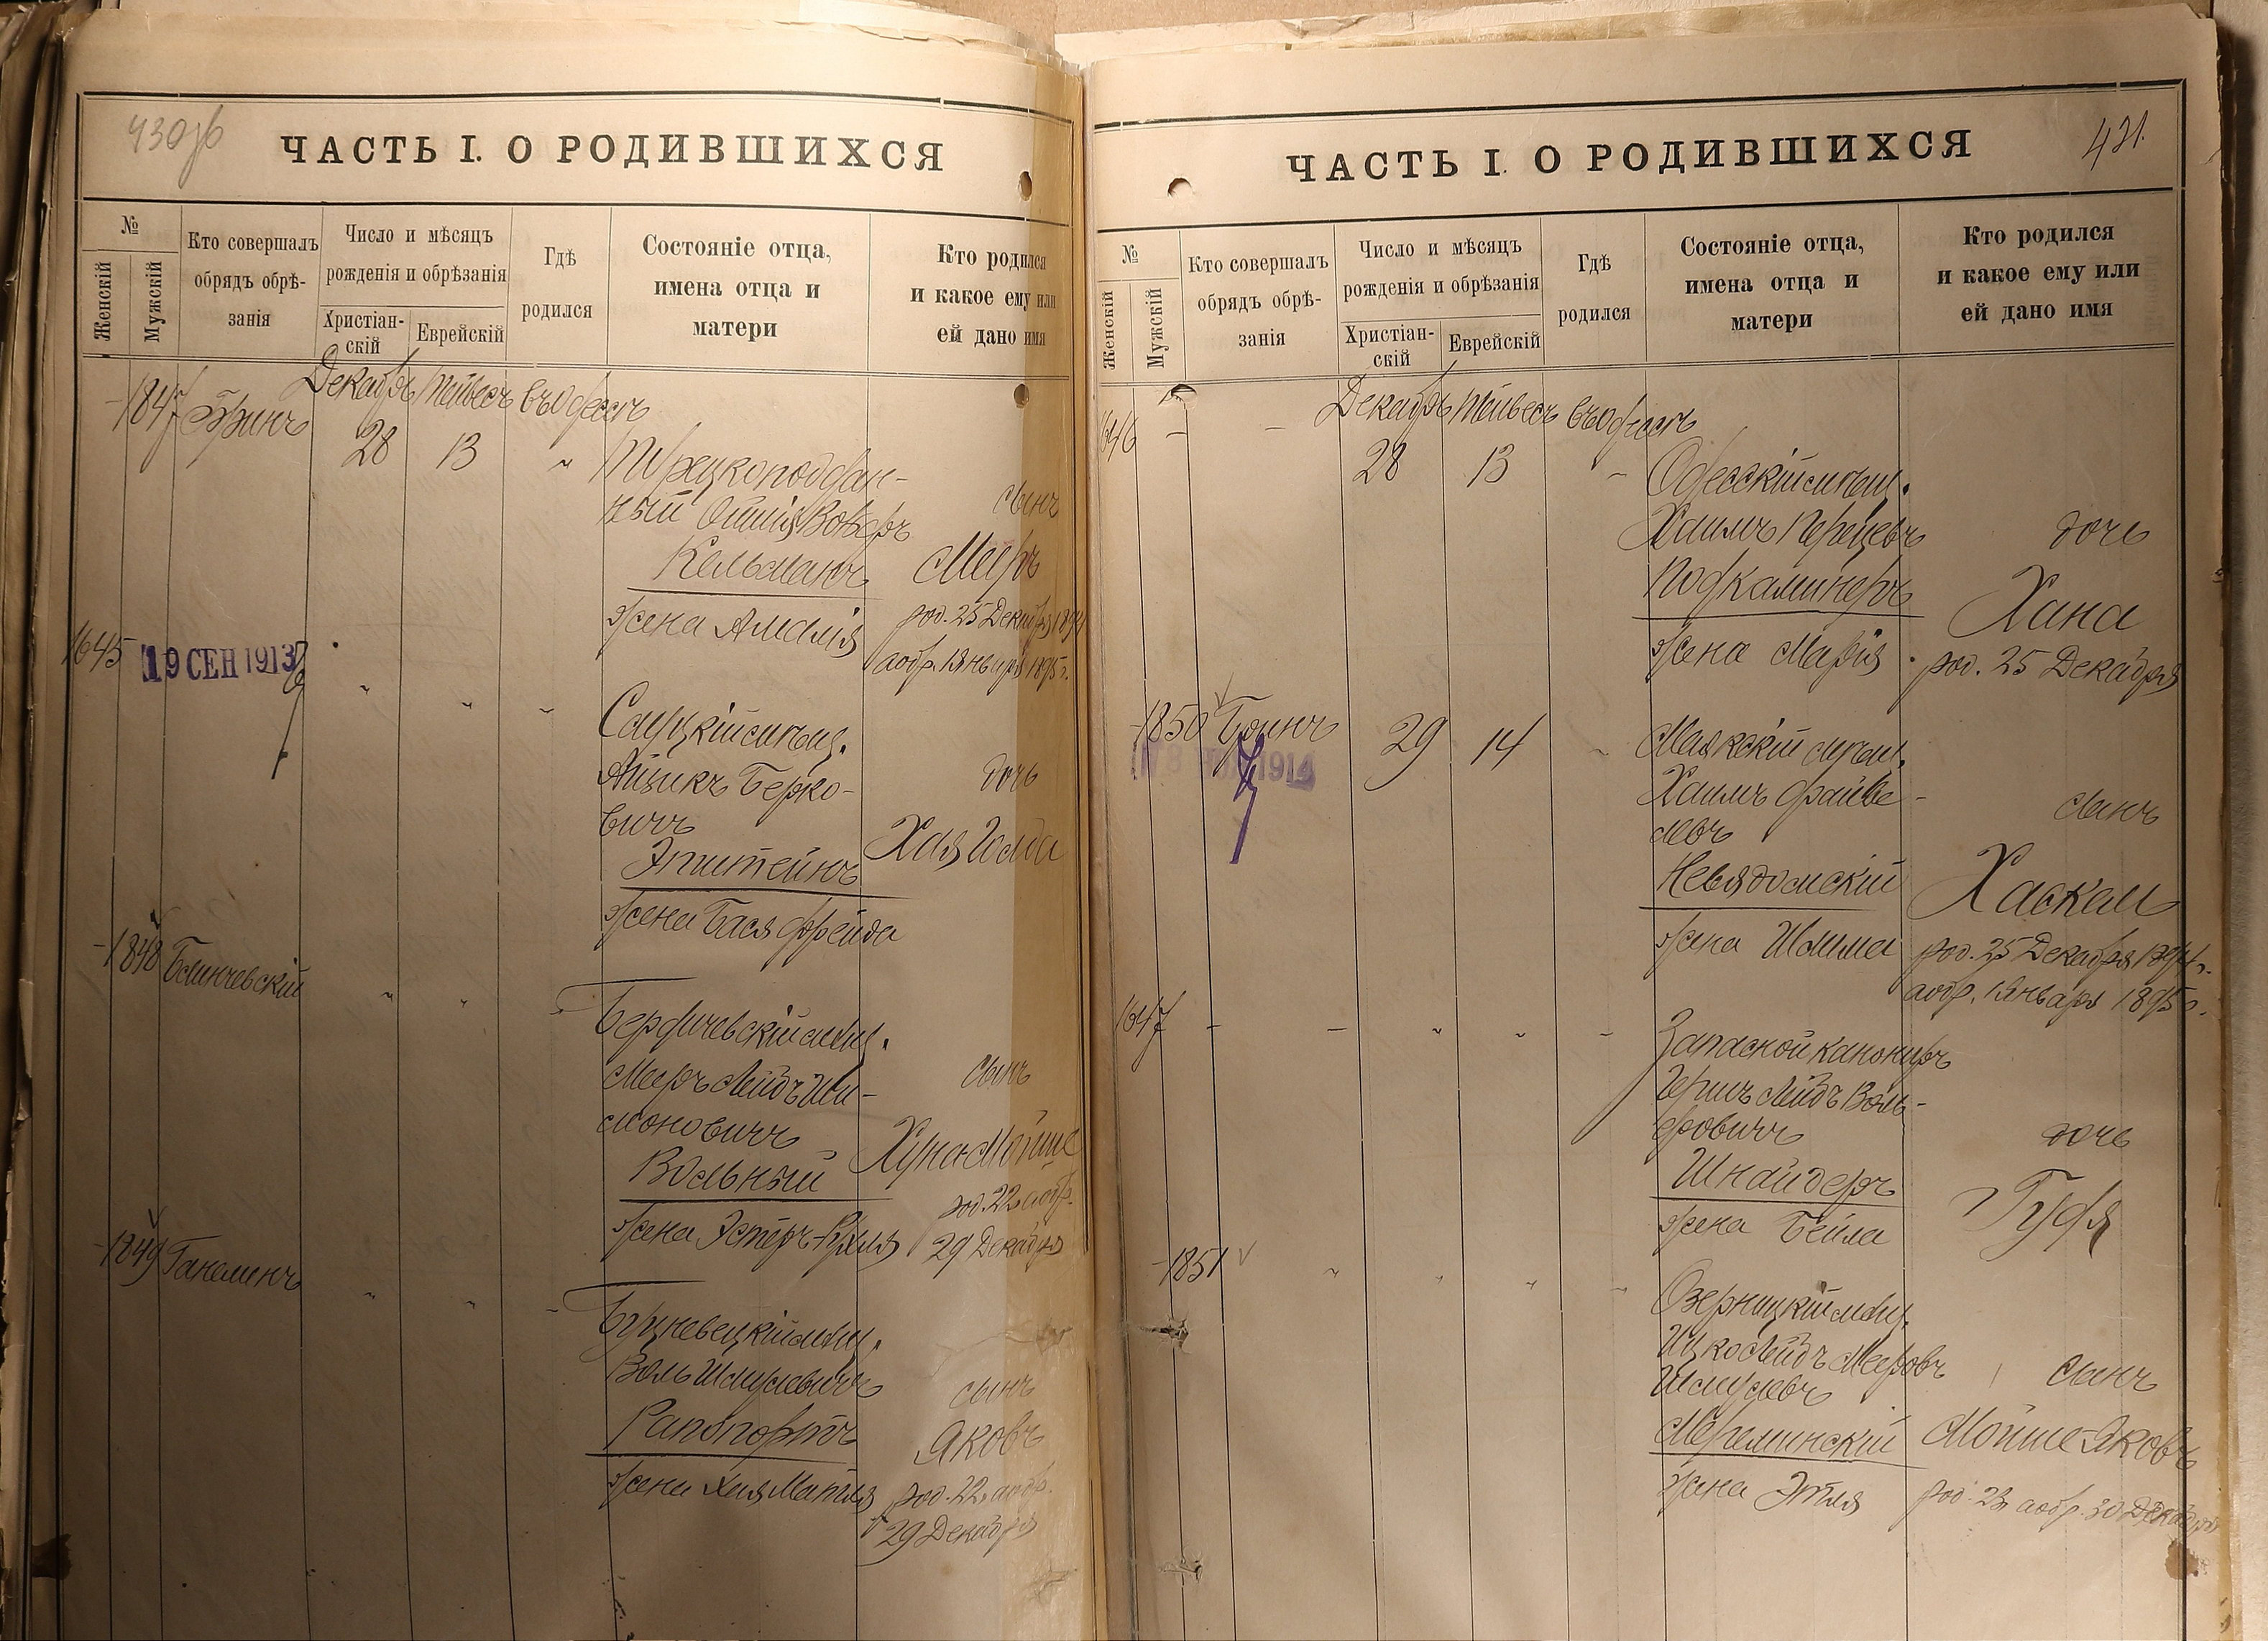 430об
ЧАСТЬ I. О РОДИВШИХСЯ
№
Женскій
Мужскій
Кто совершалъ
обрядъ обрѣ-
занія
Число и мѣсяцъ
рожденія и обрѣзанія
Христіан-
скій
Еврейскій
Гдѣ
родился
Состояніе отца,
имена отца и
матери
Кто родился
и какое ему или
ей дано имя
Декабрь Тейвесъ въ Одессѣ
1847 Бринъ 28 13 "
Турецкоподдан-
ный
Кельманъ
жена Амалія
сынъ
Мееръ
род. 25 Декабря 1894
аобр. 1 Января 1895 г.
1645
19 СЕН 1913
" " "
Слуцкій мѣщ.
Айзикъ Берко-
вичъ
Эпштейнъ
жена Бася Фрейда
дочь
Хая Голда
1848 Блинчевскій " " "
Бердичевскій мѣщ.
Мееръ Лейбъ Ши-
моновичъ
Вольный
жена Эстеръ-Рухля
сынъ
Хуна Мойше
род. 22 аобр.
29 Декабря
1849 Ганелинъ " " "
мѣщ.
Воль Шмулевичъ
Рапопортъ
жена Хая Матля
сынъ
Яковъ
род. 22, аобр.
29 Декабря
421.
ЧАСТЬ I. О РОДИВШИХСЯ
№
Женскій
Мужскій
Кто совершалъ
обрядъ обрѣ-
занія
Число и мѣсяцъ
рожденія и обрѣзанія
Христіан-
скій
Еврейскій
Гдѣ
родился
Состояніе отца,
имена отца и
матери
Кто родился
и какое ему или
ей дано имя
Декабрь Тейвесъ въ Одессѣ
1646 - - 28 13 "
Одесскій мѣщ.
Хаимъ Перецевъ
Подкаминеръ
жена Марія
дочь
Хана
род. 25 Декабря
1850 Бринъ 29 14 "
1914
Маякскій мѣщ.
Хаимъ Файве-
левъ
Невядомскій
жена Шлима
сынъ
Хаскель
род. 25 Декабря 1894 г.
аобр. 1 Января 1895 г.
1647 - - " " "
Запасной канониръ
Гершъ Лейбъ Воль-
фовичъ
Шнайдеръ
жена Бейла
дочь
Гудя
1851 " " " "
Озерницкій мѣщ.
Ицко Лейбъ Мееровъ
Шмулевъ
Меременскій
жена Этля
сынъ
Мойше Яковъ
род. 23 аобр. 30 Декабря